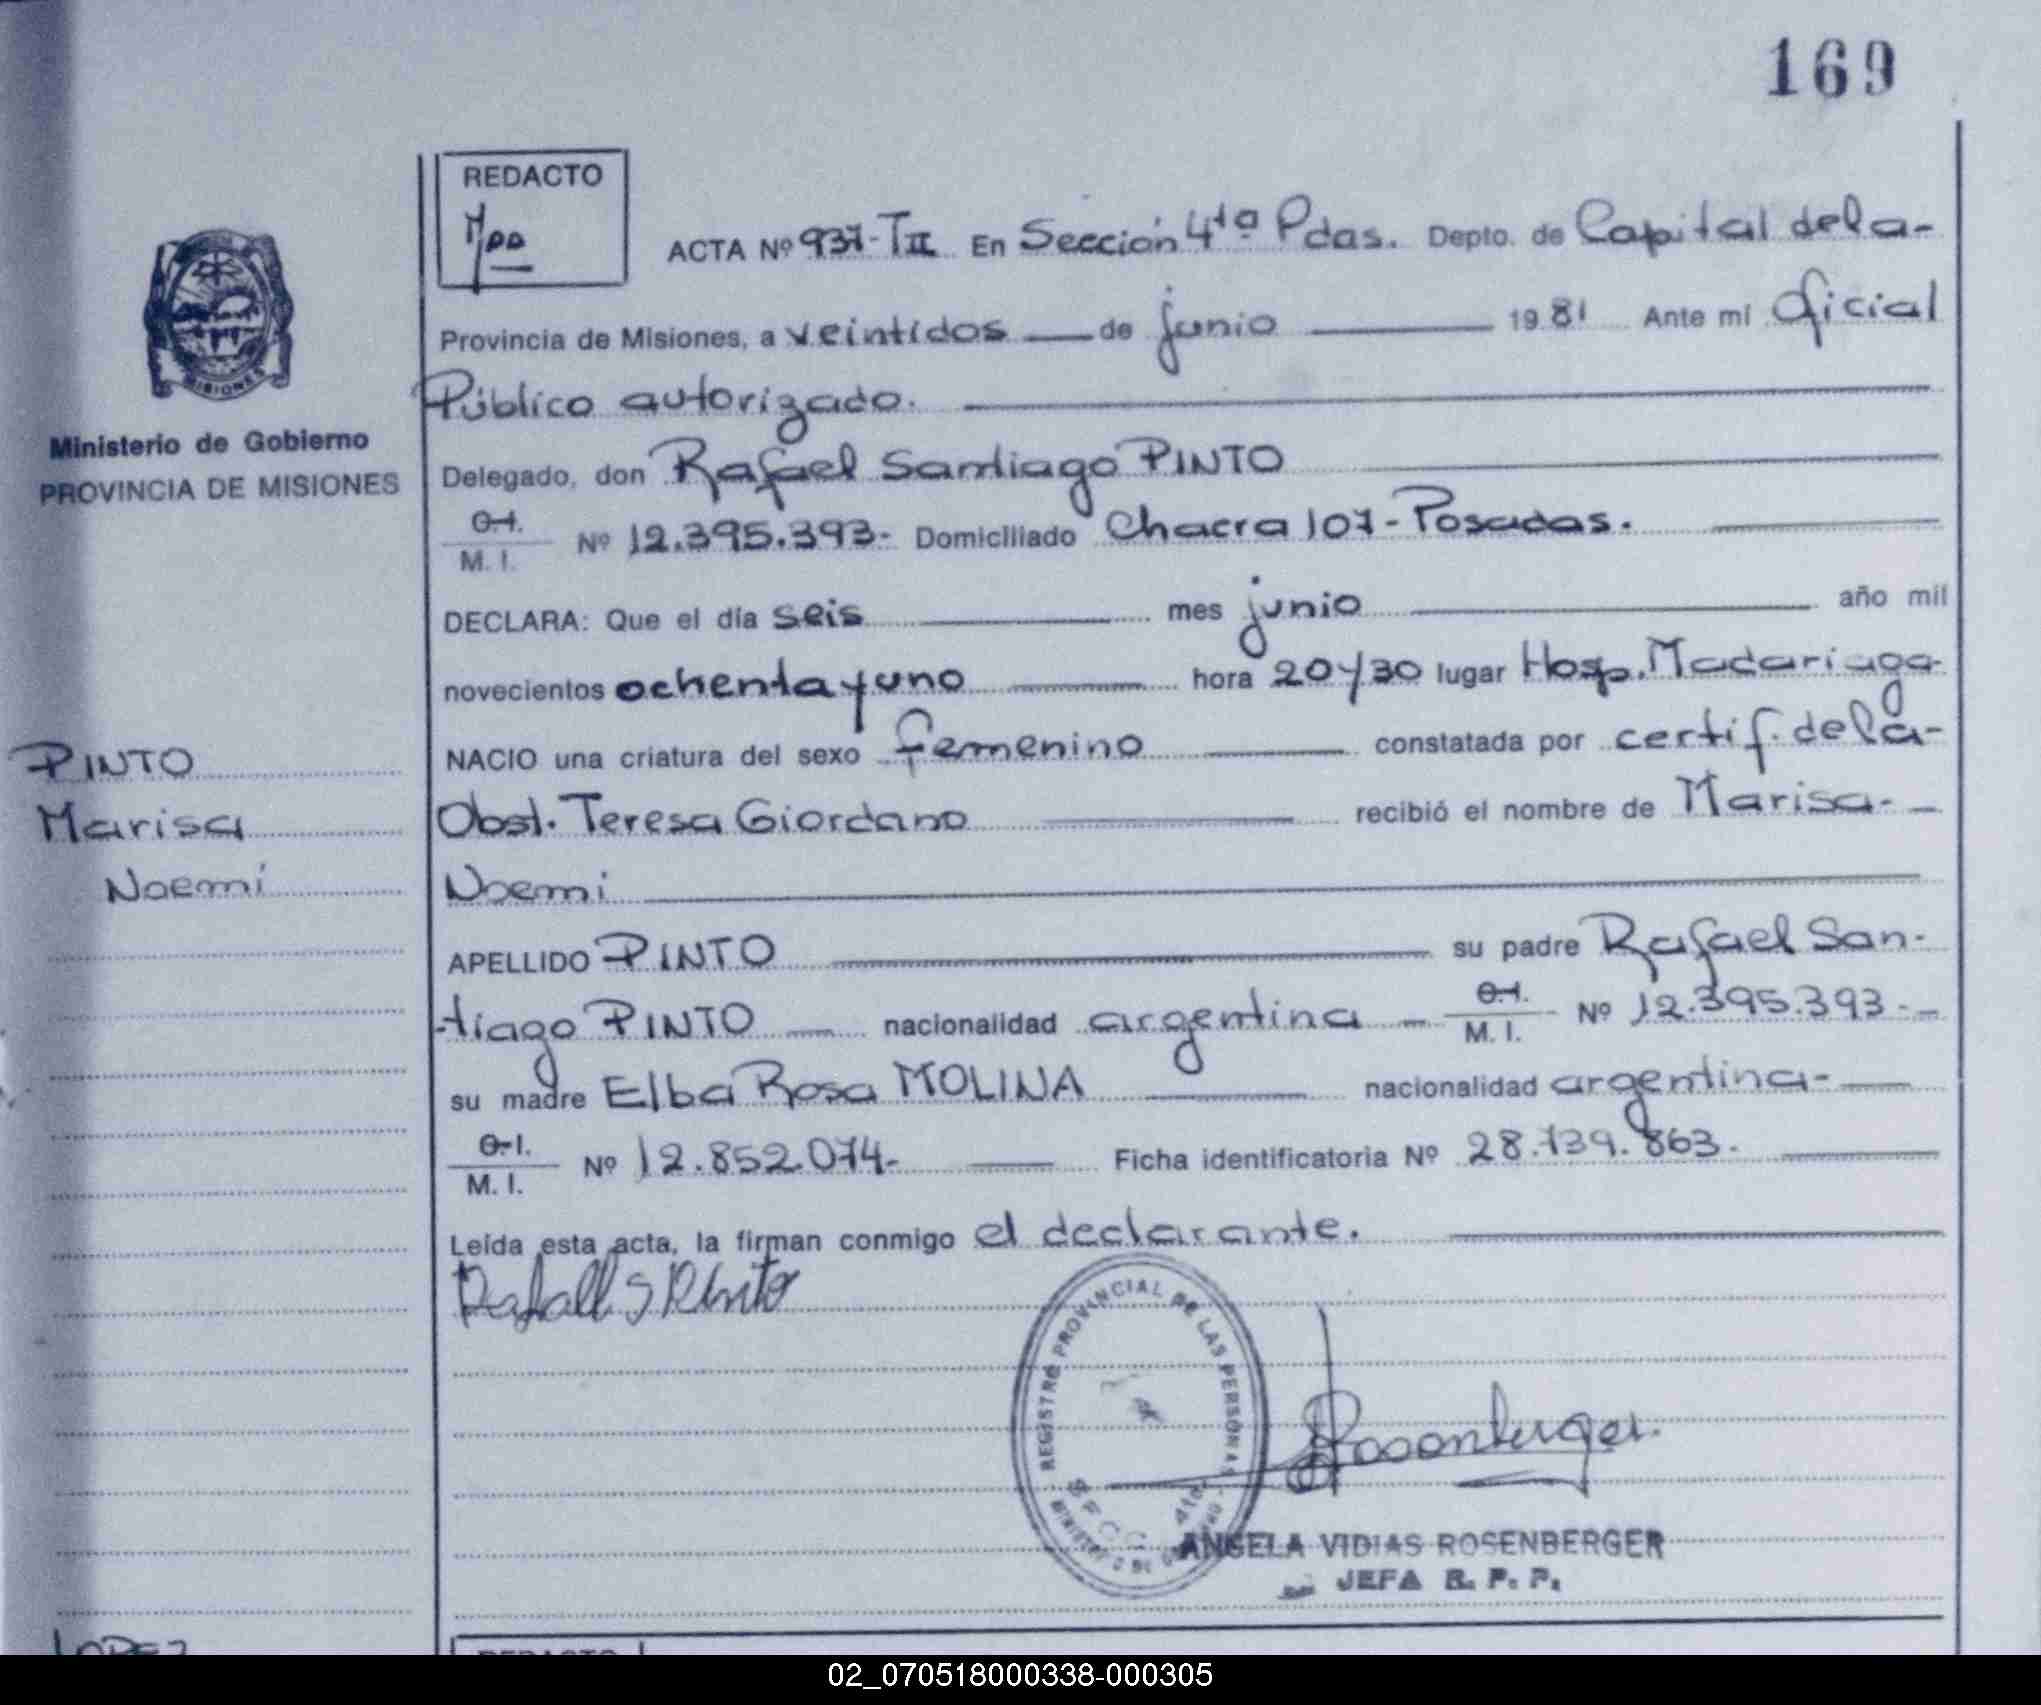 169
REDACTO
ACTA Nº 937-TII En Sección 4ta Pdas. Depto. de Capital de la-
Provincia de Misiones, a veintidos de junio 1981 Ante mi Oficial
Público autorizado.
Ministerio de Gobierno
PROVINCIA DE MISIONES
Delegado, don Rafael Santiago PINTO
O.I.
M. I. Nº 12.395.393- Domiciliado Chacra 107-Posadas.
DECLARA: Que el día seis mes junio año mil
novecientos ochenta y uno hora 20y30 lugar Hosp. Madariaga-
PINTO
Marisa
Noemi
NACIO una criatura del sexo femenino constatada por certif. de la-
Obst. Teresa Giordano recibió el nombre de Marisa-
Noemi
APELLIDO PINTO su padre Rafael San-
tiago PINTO nacionalidad argentina O.I.
M. I. Nº 12.395.393-
su madre Elba Rosa MOLINA nacionalidad argentina-
O.I.
M. I. Nº 12.852.074- Ficha identificatoria Nº 28.739.863-
Leída esta acta, la firman conmigo el declarante.
Rafael S Pinto
REGISTRO PROVINCIAL DE LAS PERSONAS
MINISTERIO DE GOBIERNO
SECC. 4ta
Rosenberger
ANGELA VIDIAS ROSENBERGER
JEFA R. P. P.
LOPEZ
REDACTO
02_070518000338-000305